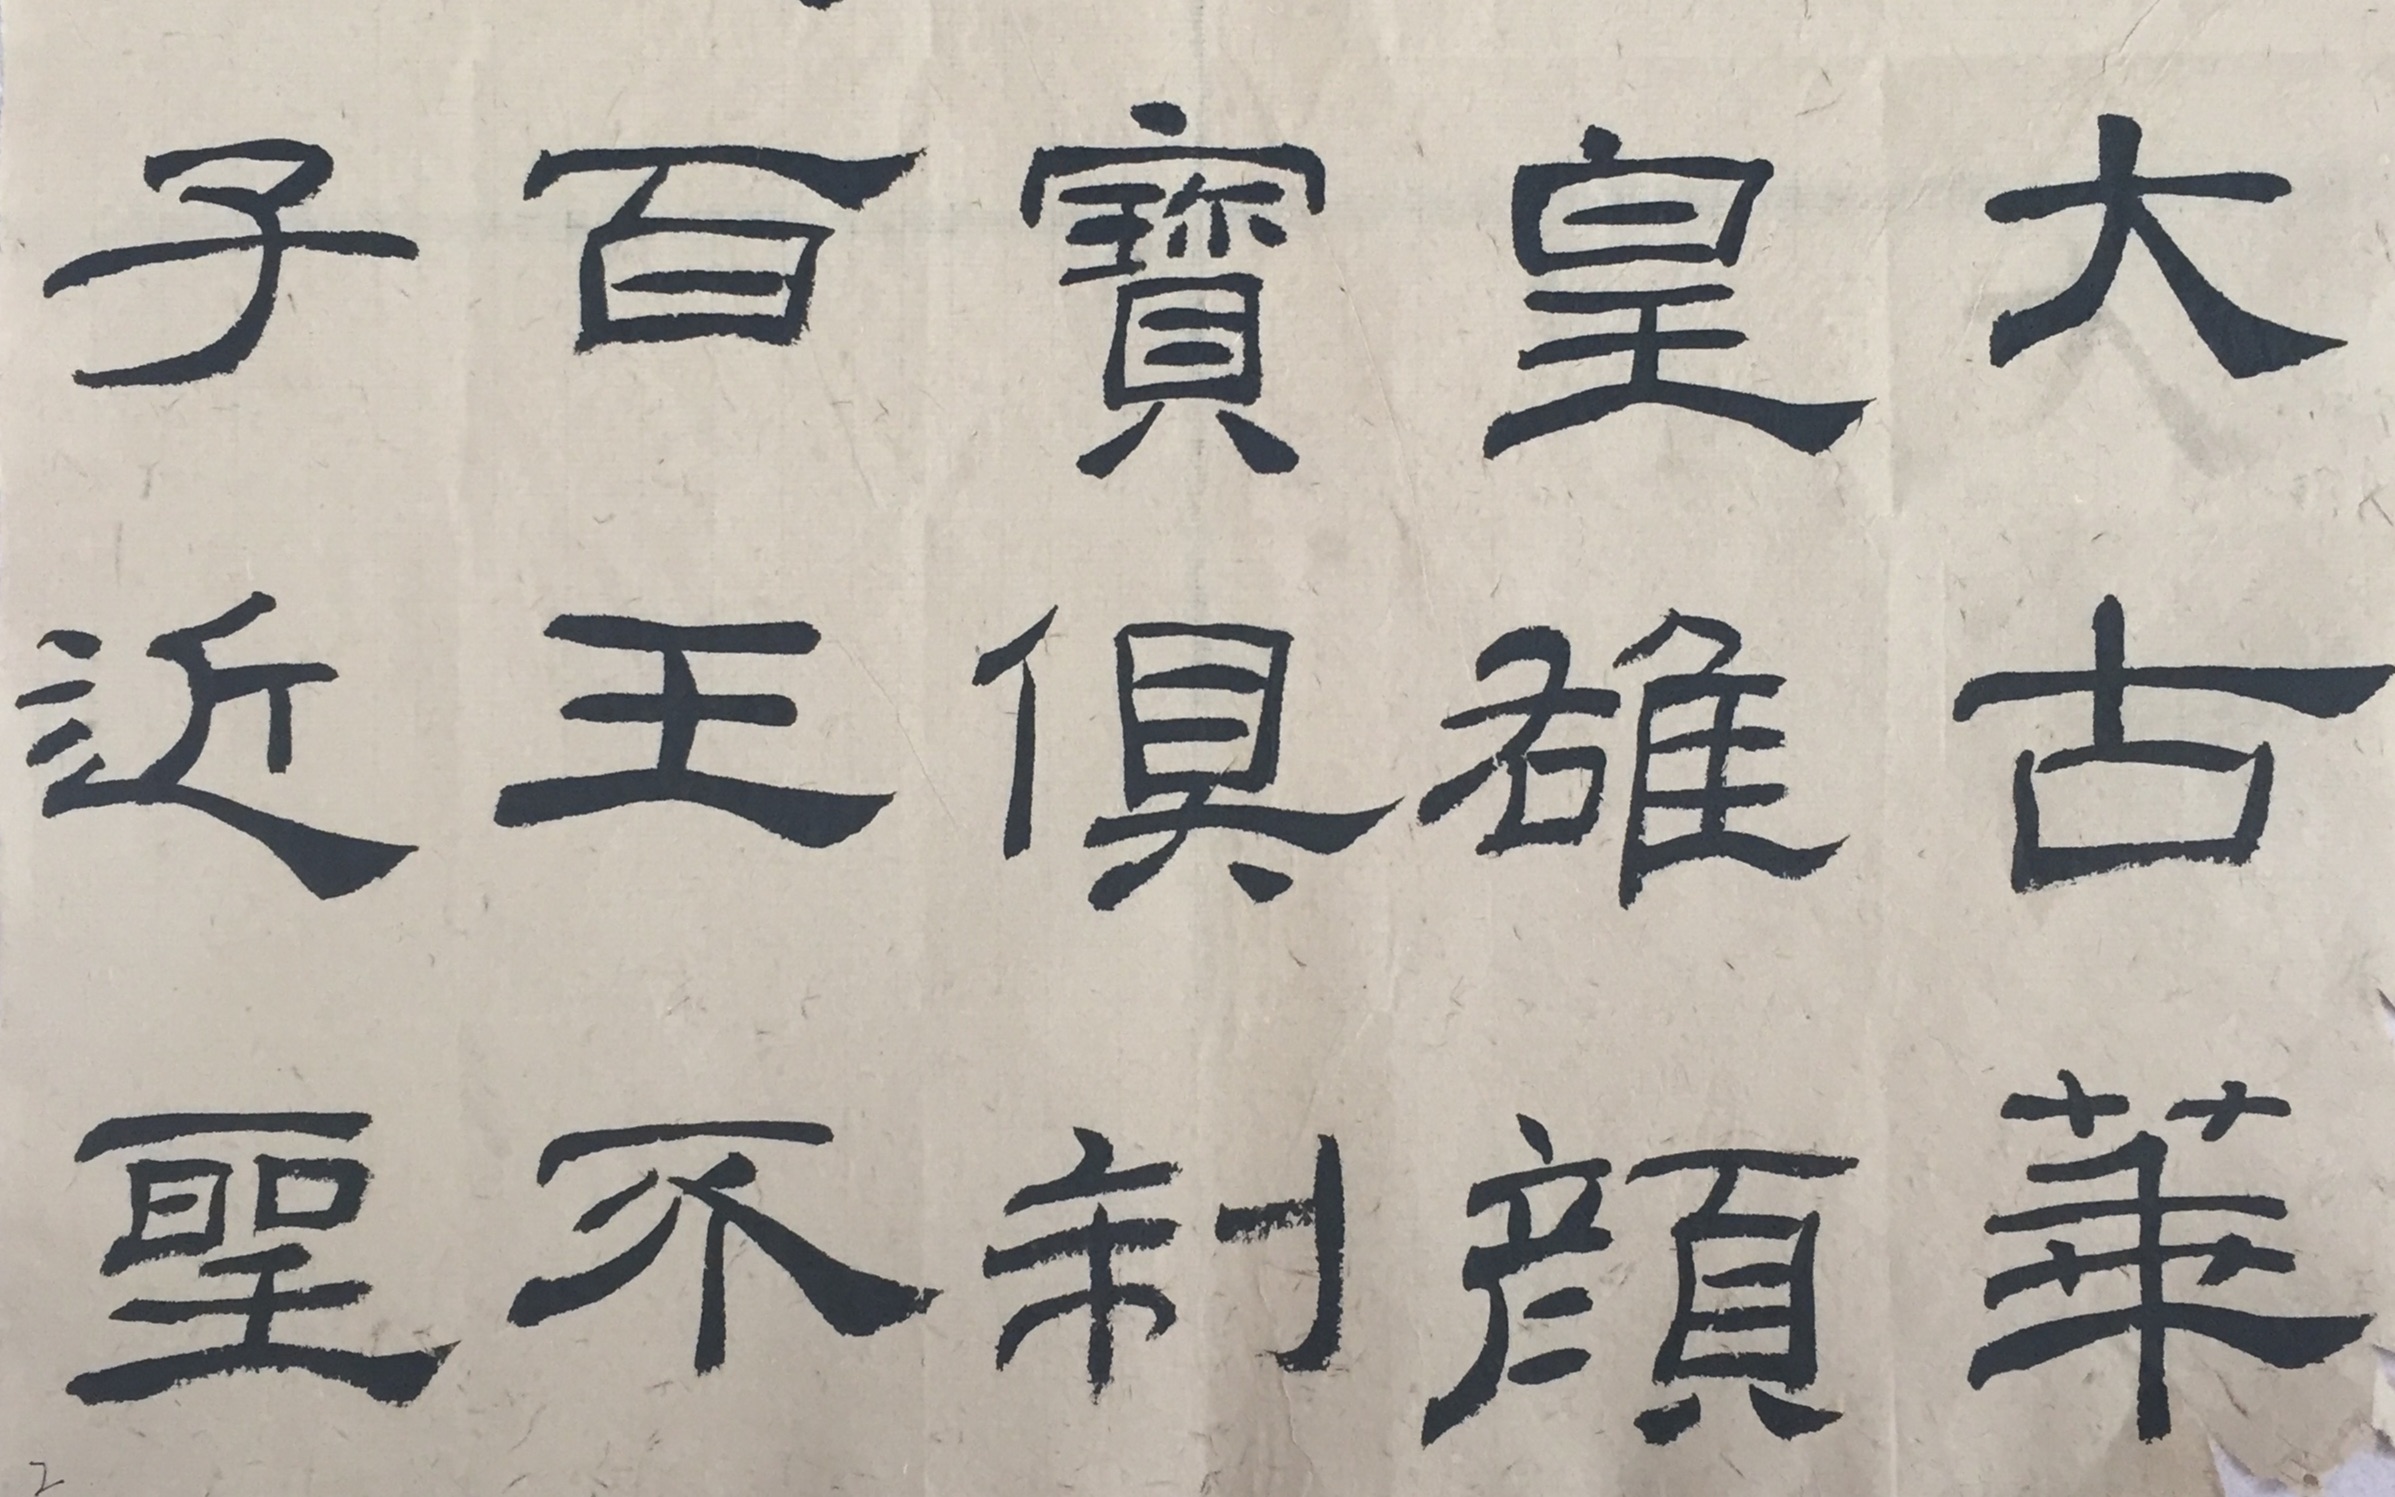 大古華
皇雄顏
寶俱制
百王不
子近聖